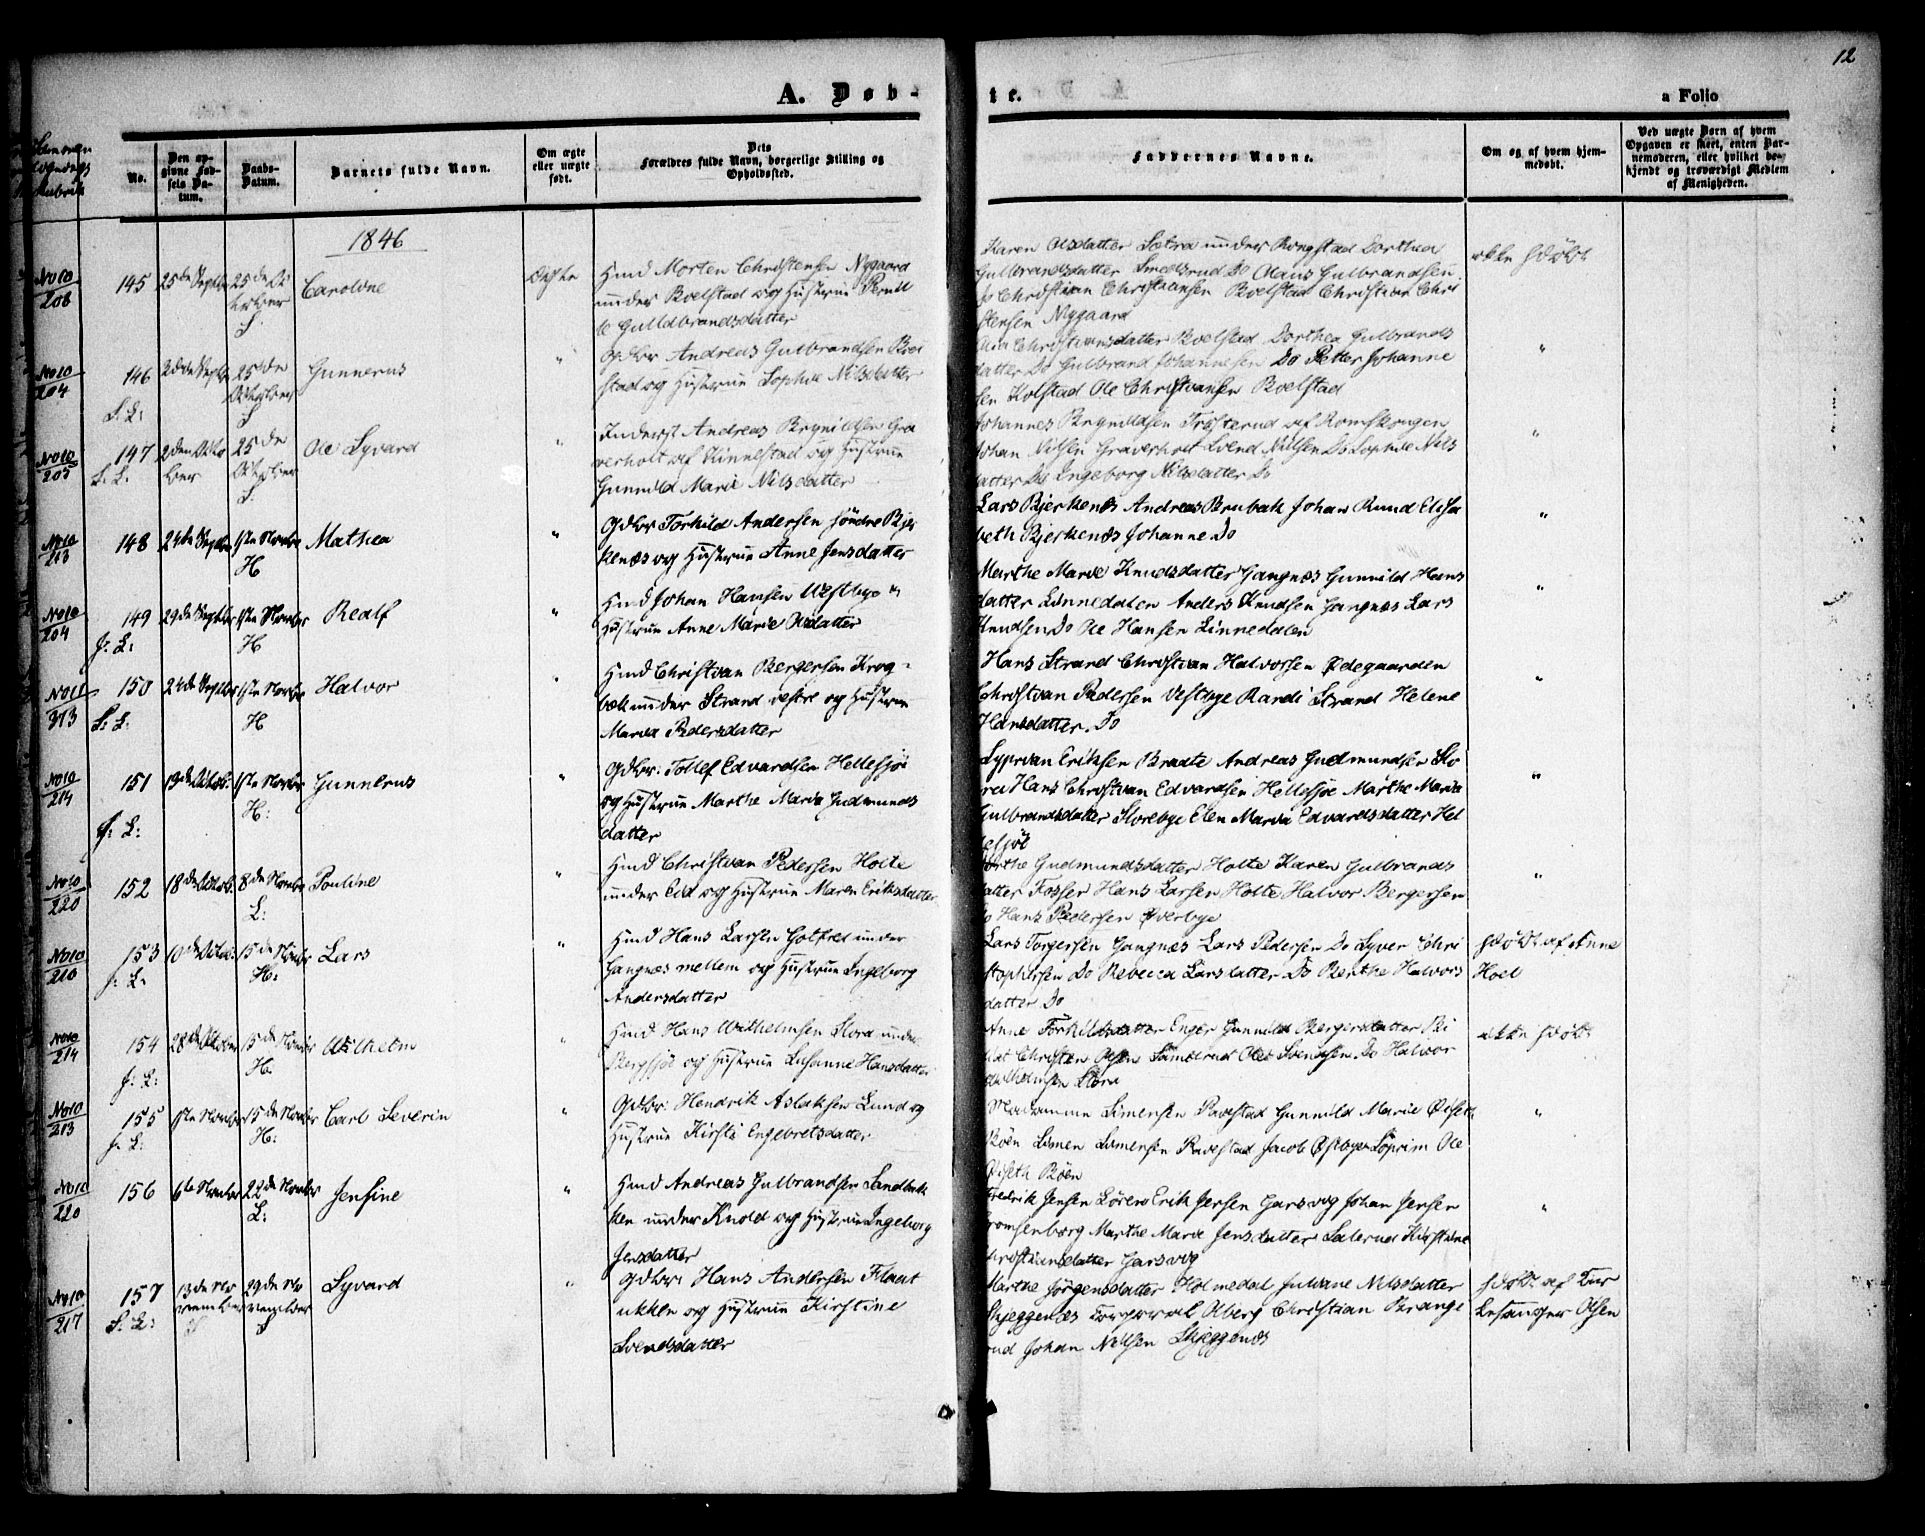 12
A. Døb-
te.
a Folio
No.
Den op-
givne Fød-
sels Da-
tum.
Daabs-
Datum.
Barnets fulde Navn.
Om ægte
eller uægte
født.
Dets
Forældres fulde Navn, borgerlige Stilling og
Opholdssted.
Faddernes Navne.
Om og af hvem hjem-
medøbt.
Ved uægte Børn af hvem
Opgaven er skeet, enten Bar-
nemoderen, eller hvilket be-
kjendt og troværdigt Medlem
af Menigheden.
1846
No 10
208
145
25de Septbr
25de Oc
tober
Caroline
Ægte
Hmd Morten Christensen Nygaard
under Roelstad og Hustrue Pernil
le Guldbrandsdatter
Karen Olsdatter Sætra under Ringstad Dorthea
Gulbrandsdatter Smedsrud Do Olaus Gulbrandsen
Do Christian Christiansen Roelstad Christian Chri
stensen Nygaard
ikke hjdøbt
No 10
204
146
2den Septbr
25de
October
Gunnerus
"
Gdbr Andreas Gulbrandsen Roel
stad og Hustrue Sophie Nilsdatter
Christiansdatter Roelstad Dorthea Gulbrands
datter Do Gulbrand Johannesen Do Petter Johanne
sen Kolstad Ole Christiansen Roelstad
"
No 10
205
147
2den Octo
ber
25de
October
Ole Syvard
"
Inderst Andreas Brynildsen Gra
verholt af Kinnestad og Hustrue
Gunnild Marie Nilsdatter
Johannes Brynildsen Tristerud af Romskougen
Johan Nilsen Graverholt Svend Nilsen Do Sophie Nils
datter Do Ingeborg Nilsdatter Do
"
No 10
213
148
24de Septbr
1ste Novbr
H
Mathea
"
Gdbr Torkild Andersen søndre Bjer
kenæs og Hustrue Anne Jensdatter
Lars Bjerkenæs Andreas Brubak Johan Rund Elisa
beth Bjerkenæs Johanne Do
"
No 10
204
149
29de Septbr
1ste Novbr
H
Realf
"
Hmd Johan Hansen Westbye
Hustrue Anne Marie Olsdatter
Marthe Marie Knudsdatter Gangnæs Gunnild Hans
datter Linnedalen Anders Knudsen Gangnæs Lars
Knudsen Do Ole Hansen Linnedalen
"
313
150
24de Septbr
1ste Novbr
H
Halvor
"
Hmd Christian Bergersen Krog-
bæk under Strand vestre og Hustrue
Maria Pedersdatter
Hans Strand Christian Halvorsen Ødegaarden
Christian Pedersen Vestbye Randi Strand Helene
Hansdatter Do
"
No 10
214
151
19de Octob.
1ste Novbr
H:
Gunnerus
"
Gdbr: Tollef Edvardsen Hellesjøe
og Hustrue Marthe Maria Gudmunds
datter
Syprian Eriksen Braate Andreas Gudmundsen Slo
ra Hans Christian Edvardsen Hellesjøe Marthe Maria
Gulbrandsdatter Slorebye Elen Maria Edvardsdatter Hel
lesjøe
"
No 10
220
152
18de Octob.
8de Novbr
L:
Pouline
"
Hmd Christian Pedersen Holte
under Eid og Hustrue Maren Eriksdatter
Gudmundsdatter Holte Karen Gulbrands
datter Fosser Hans Larsen Holte Halvor Bergersen
Do Hans Pedersen Øverbye
"
No 10
210
153
10de Octob:
15de Novbr
H:
Lars
"
Hmd Hans Larsen Holtet under
Gangnæs mellem og Hustrue Ingeborg
Andersdatter
Lars Torgersen Gangnæs Lars Pedersen Do Syver Chri
stophersen Do Rebecca Larsdatter Do Berthe Halvors
datter Do
hjdøbt af Anne
Hoel
No 10
214
154
28de October
15de Novbr
H.
Wilhelm
"
Hmd Hans Wilhelmsen Slora under
Bergsjøe og Hustrue Susanne Hansdatter
Anne Torkildsdatter Enger Gunnild Bergersdatter
Christen Olsen Simelrud Ole Svendsen Do Halvor
Wilhelmsen Slora
ikke hjdøbt
No 10
213
155
1ste Novbr
15de Novbr
H:
Carl Severin
"
Gdbr: Hendrik Aslaksen Lund og
Hustrue Kirsti Engebretsdatter
Madamme Simensen Ravestad Gunnild Marie Øiseth
Bøen Simen Simensen Ravestad Jacob Østbye Ole
Øiseth Bøen
"
No 10
220
156
6te Novbr
22de Novbr
L:
Jensine
"
Hmd Andreas Gulbrandsen Sandbæk
ken under Knold og Hustrue Ingeborg
Jensdatter
Fredrik Jensen Sören Erik Jensen Garsvig Johan Jensen
Marthe Marie Jensdatter Salerud Kirstine
Christiansdatter Garsvig
"
No 10
217
157
13de No
vember
29de No
vember
Syvard
"
Gdbr: Hans Andersen Flaat
ukken og Hustrue Kirstine
Svendsdatter
Marthe Jørgensdatter Holmedal Juliane Nilsdatter
Skjeggenæs Corporal Olberg Christian Krange
rud Johan Nilsen Skjeggenæs
hjdøbt af Kir
kesanger Olsen